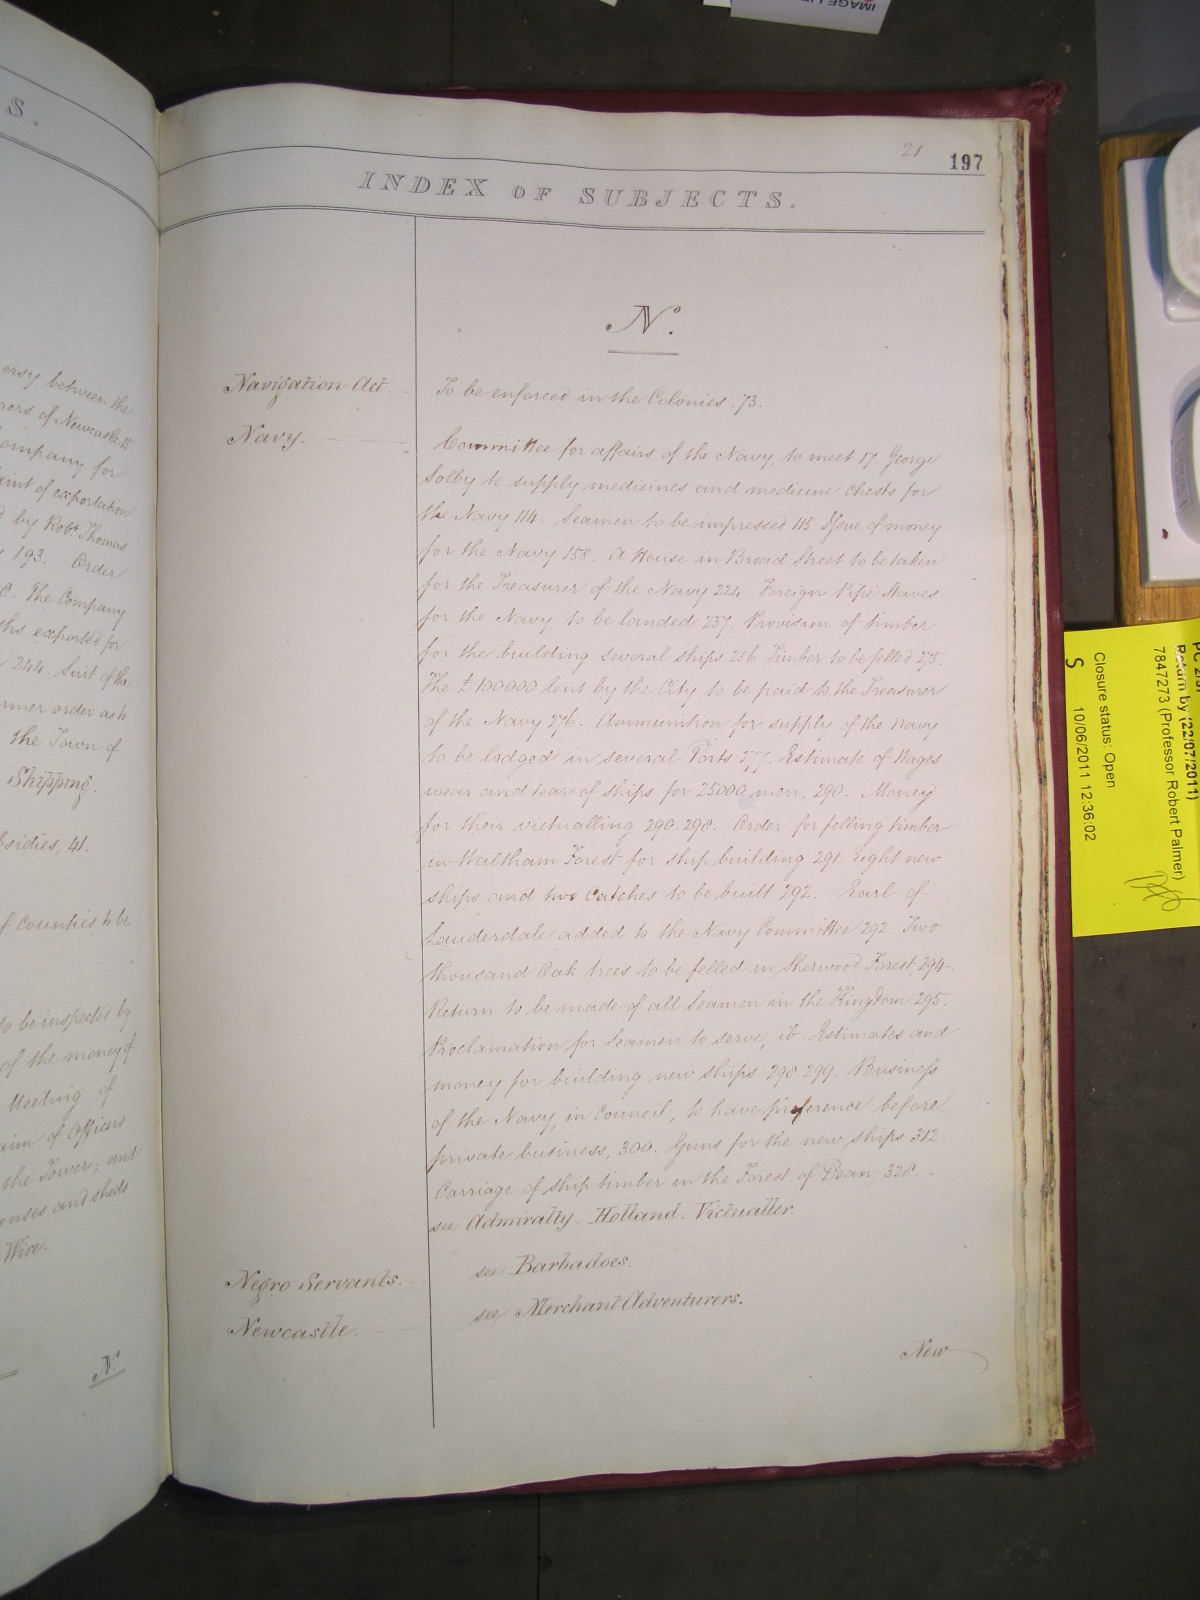 S.
ersy between the
ners of Newcastle 15.
ompany for
aint of exportation
d by Robt. Thomas
193. Order
8. The Company
ths exported for
244. Suit of the
rmer order as to
the Town of
Shipping.
bsidies, 41.
f Counties, to be
to be inspected by
of the money of
Meeting of
of Officers
the Tower; and
ouses and sheds
Wire.
N.
21 197
INDEX OF SUBJECTS.
N.
Navigation Act. To be enforced in the Colonies. 73.
Navy. Committee for affairs of the Navy, to meet 17. George
Solby to supply medicines and medicine Chests for
the Navy 114. Seamen to be impressed 115. Issue of money
for the Navy 158. A House in Broad Street to be taken
for the Treasurer of the Navy 224. Foreign Pipe Staves
for the Navy to be landed 237. Provision of timber
for the building several ships 256 Timber to be felled 275.
The £100000 lent by the City to be paid to the Treasurer
of the Navy 276. Ammunition for supply of the Navy
to be lodged in several Ports 277. Estimate of Wages
wear and tear of ships for 25000 men, 290. Money
for their victualling 290. 298. Order for felling timber
in Waltham Forest for ship building 291. Eight new
ships and two Catches to be built 292. Earl of
Lauderdale added to the Navy Committee 292. Two
thousand Oak trees to be felled in Sherwood Forest, 294.
Return to be made of all Seamen in the Kingdom 295.
Proclamation for Seamen to serve, ib. Estimates and
money for building new ships 298. 299. Business
of the Navy, in Council, to have preference before
private business, 300. Guns for the new ships 312.
Carriage of ship timber in the Forest of Dean, 328.
see Admiralty. Holland. Victualler.
Negro Servants. see Barbadoes.
Newcastle. see Merchant Adventurers.
New
IMAGE LI
PC 2/5
Return by (22/07/2011)
7847273 (Professor Robert Palmer)
Closure status: Open
S 10/06/2011 12:36:02